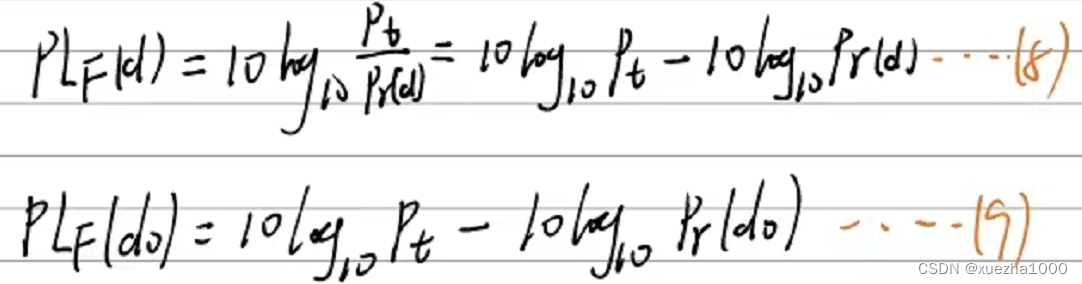 PL_F(d) = 10 log_10 P_t / P_r(d) = 10 log_10 P_t - 10 log_10 P_r(d) ····(8)
PL_F(d_0) = 10 log_10 P_t - 10 log_10 P_r(d_0) ····(9)
CSDN @xuezha1000